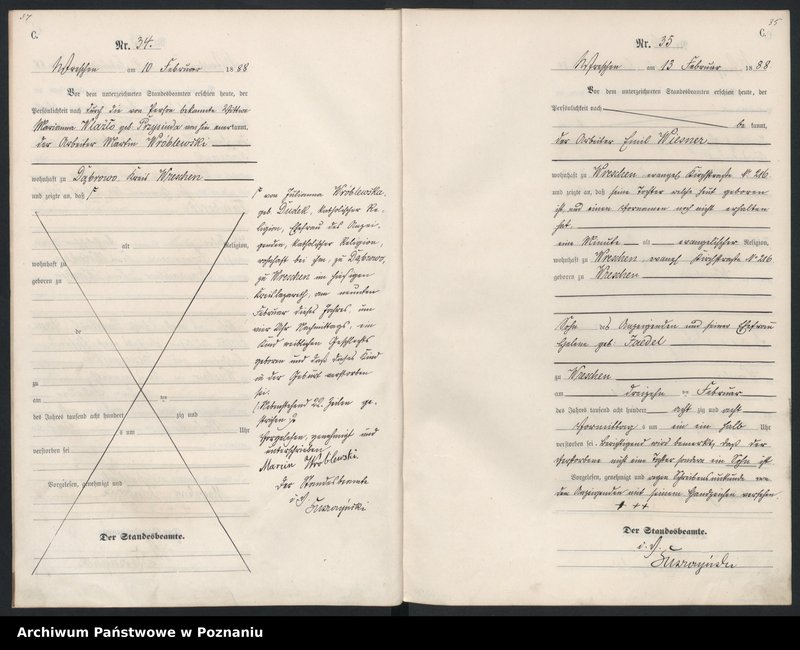 37
C.
Nr. 34.
Wreschen am 10 Februar 1888
Vor dem unterzeichneten Standesbeamten erschien heute, der
Persönlichkeit nach durch die von Person bekannte Wittwe
Marianna Wlazlo geb. Przysinda kannt,
der Arbeiter Martin Wróblewski
wohnhaft zu Dąbrowo Kreis Wreschen
und zeigte an, daß
alt Religion,
wohnhaft zu
geboren zu
de
zu
am ten
des Jahres tausend acht hundert zig und
um Uhr
verstorben sei
Vorgelesen, genehmigt und
Der Standesbeamte.
von Julianna Wróblewska,
geb. Dudek, katholischer Re-
ligion, Ehefrau des Anzei-
genden, katholischer Religion,
wohnhaft bei ihm, zu Dąbrowo,
zu Wreschen im hiesigen
Kreislazareth, am neunten
Februar dieses Jahres, um
vier Uhr Nachmittags, ein
Kind weiblichen Geschlechts
geboren und daß dieses Kind
in der Geburt verstorben
sei.
Nebenstehend 22 Zeilen ge-
strichen
Vorgelesen, genehmigt und
unterschrieben
Marcin Wróblewski.
Der Standesbeamte
i. V.
35
C.
Nr. 35
Wreschen am 13 Februar 1888
Vor dem unterzeichneten Standesbeamten erschien heute, der
Persönlichkeit nach
be kannt,
der Arbeiter Emil Wiesner
wohnhaft zu Wreschen evangel. Kirchstraße No 216
und zeigte an, daß seine Tochter welche heut geboren
ist und einen Vornamen noch nicht erhalten
hat,
eine Minute alt evangelischer Religion,
wohnhaft zu Wreschen, evangl Kirchstraße No 216
geboren zu Wreschen
Sohn des Anzeigenden und seiner Ehefrau
Helene geb. Jaedel
zu Wreschen
am dreizehn ten Februar
des Jahres tausend acht hundert acht zig und acht
Vormittag um ein ein halb Uhr
verstorben sei. Berichtigend wird bemerkt, daß der
Verstorbene nicht eine Tochter sondern ein Sohn ist
Vorgelesen, genehmigt und wegen Schreibensunkunde von
dem Anzeigenden mit seinem Handzeichen versehen.
+++
Der Standesbeamte.
i. V.
Archiwum Państwowe w Poznaniu